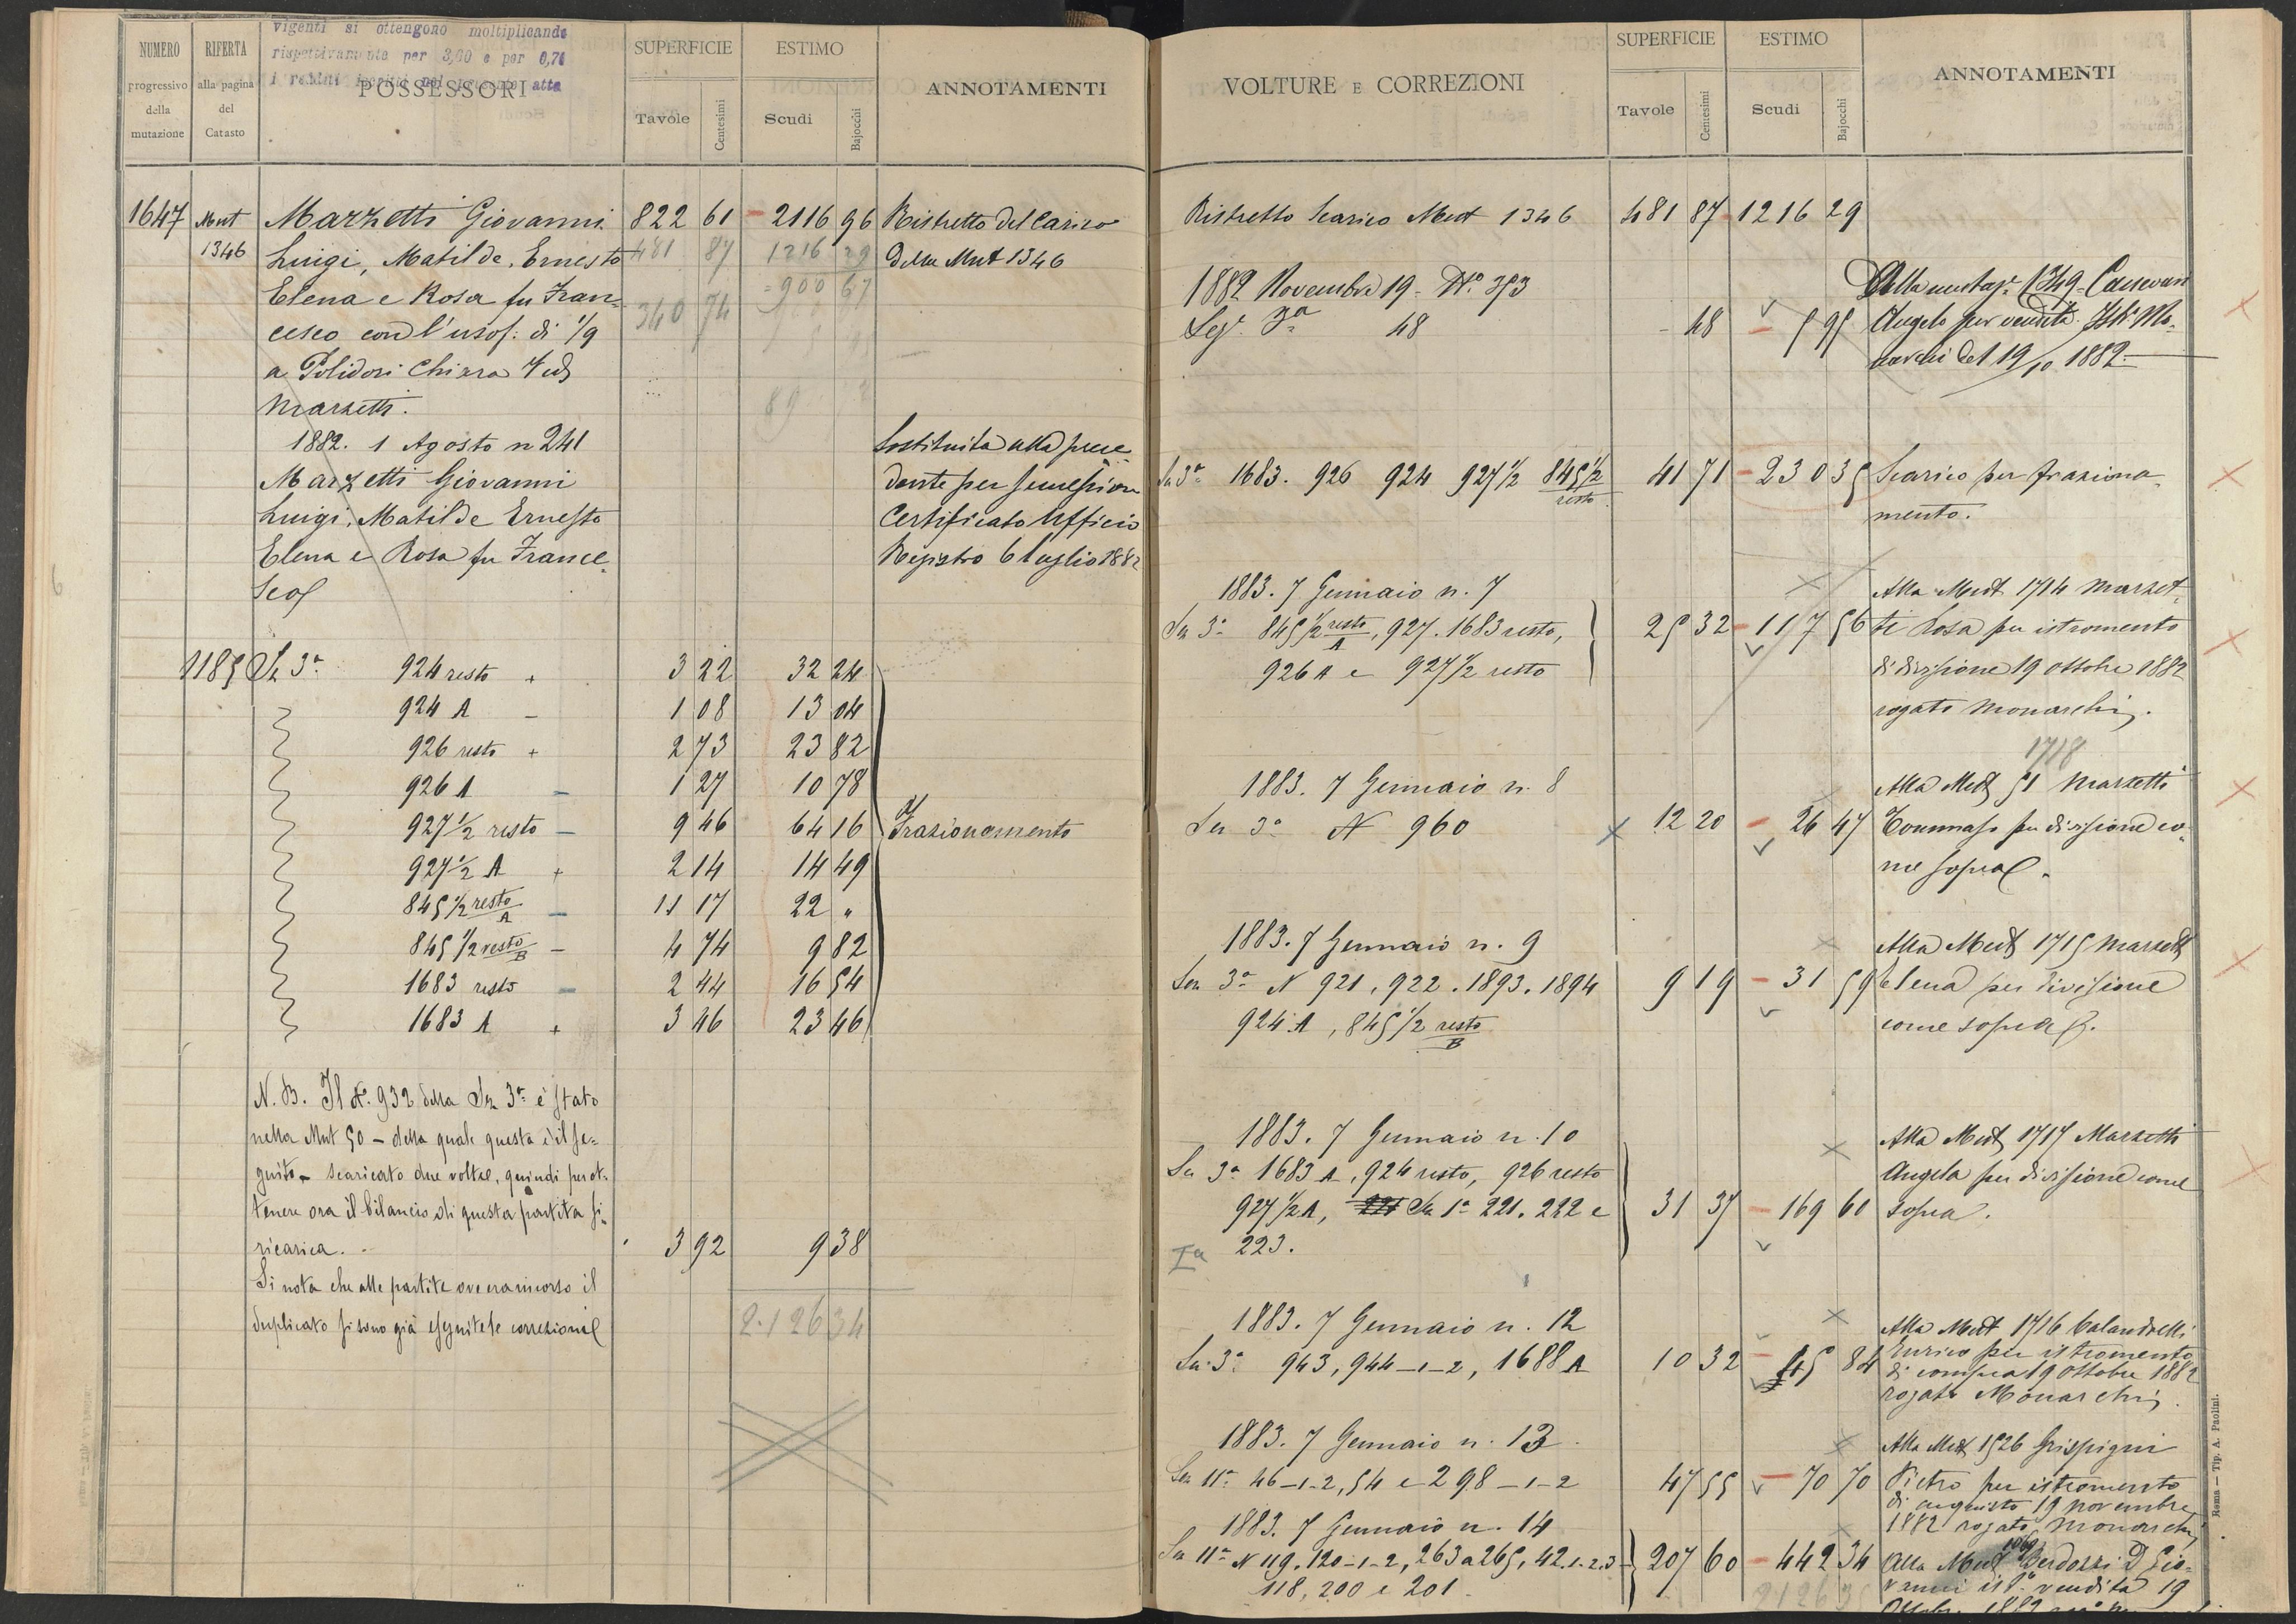 vigenti si ottengono moltiplicando
rispettivamente per 3,00 e per 0,71
NUMERO progressivo della mutazione
RIFERTA alla pagina del Catasto
POSSESSORI
SUPERFICIE Tavole Centesimi
ESTIMO Scudi Bajocchi
ANNOTAMENTI
1647 Mut Marzetti Giovanni 822 61 - 2116 96 Ristretto del Carico
1346 Luigi, Matilde, Ernesto 481 87 1216 29 della Mut 1346
Elena e Rosa fu Fran= 900 67
cesco con l'usof: di 1/9 340 74
a Polidori Chiara Ved
Marzetti.
1882. 1 Agosto n 241 Sostituita alla prece=
Marzetti Giovanni dente per successione
Luigi, Matilde Ernesto Certificato Ufficio
Elena e Rosa fu France= Registro 6 luglio 1882
sco
1185 Sez 3a 924 resto + 3 22 32 24
924 A - 1 08 13 04
926 resto + 2 73 23 82
926 A - 1 27 10 78
927 1/2 resto - 9 46 64 16 Frazionamento
927 1/2 A + 2 14 14 49
845 1/2 resto/A - 11 17 22 "
845 1/2 resto/B - 4 74 9 82
1683 resto - 2 44 16 54
1683 A + 3 46 23 46
N. B. Il N. 932 della Sez 3a è stato
nella Mut 50 - della quale questa è il se=
guito - scaricato due volte, quindi per ot=
tenere ora il bilancio di questa partita si
ricarica. 3 92 9 38
Si nota che alle partite ove era incorso il
duplicato si sono già eseguite le correzioni 2.126 34
VOLTURE E CORREZIONI
SUPERFICIE Tavole Centesimi
ESTIMO Scudi Bajocchi
ANNOTAMENTI
Ristretto Scarico Mut 1346 481 87 - 1216 29
1882 Novembre 19 - N° 393 Alla mutaz. 1349
Sez. 3a 48 - 48 - 5 95 Angelo per vendita Not. Mo=
narchi del 19/10 1882
Sez 3a 1683. 926 924 927 1/2 845 1/2 resto 41 71 - 230 35 Scarico per fraziona=
mento.
1883. 7 Gennaio n. 7 Alla Mut 1714 Marzet=
Sez 3a 845 1/2 resto/A, 927. 1683 resto, 25 32 - 117 56 ti Rosa per istromento
926 A e 927 1/2 resto di divisione 19 Ottobre 1882
rogato Monarchi.
1718
1883. 7 Gennaio n. 8 Alla Mut 51 Marzetti
Sez 3a N 960 12 20 - 26 47 Tommaso per divisione co=
me sopra.
1883. 7 Gennaio n. 9 Alla Mut 1715 Marzetti
Sez 3a N 921, 922. 1893. 1894 9 19 - 31 59 Elena per divisione
924 A, 845 1/2 resto/B come sopra.
1883. 7 Gennaio n. 10 Alla Mut 1717 Marzetti
Sez 3a 1683 A, 924 resto, 926 resto Angela per divisione come
927 1/2 A, 221 Sez 1a 221. 222 e 31 37 - 169 60 sopra.
Ia 223.
1883. 7 Gennaio n. 12 Alla Mut 1716 Calandrelli
Sez 3a 943, 944-1-2, 1688 A 10 32 - 45 84 Enrico per istromento
di compra 19 Ottobre 1882
rogato Monarchi.
1883. 7 Gennaio n. 13 Alla Mut 1526 Grispigni
Sez 11a 46-1-2, 54 e 298-1-2 47 55 - 70 70 Pietro per istromento
di acquisto 19 novembre
1883. 7 Gennaio n. 14 1882 rogato Monarchi
Sez 11a N 119. 120-1-2, 263 a 265, 42.1.2.3 207 60 - 442 34 Alla Mut Berdozzi D Gio=
118, 200 e 201. vanni vendita 19
Roma — Tip. A. Paolini.